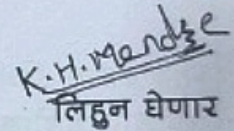 K.H. Mendze
लिहून घेणार